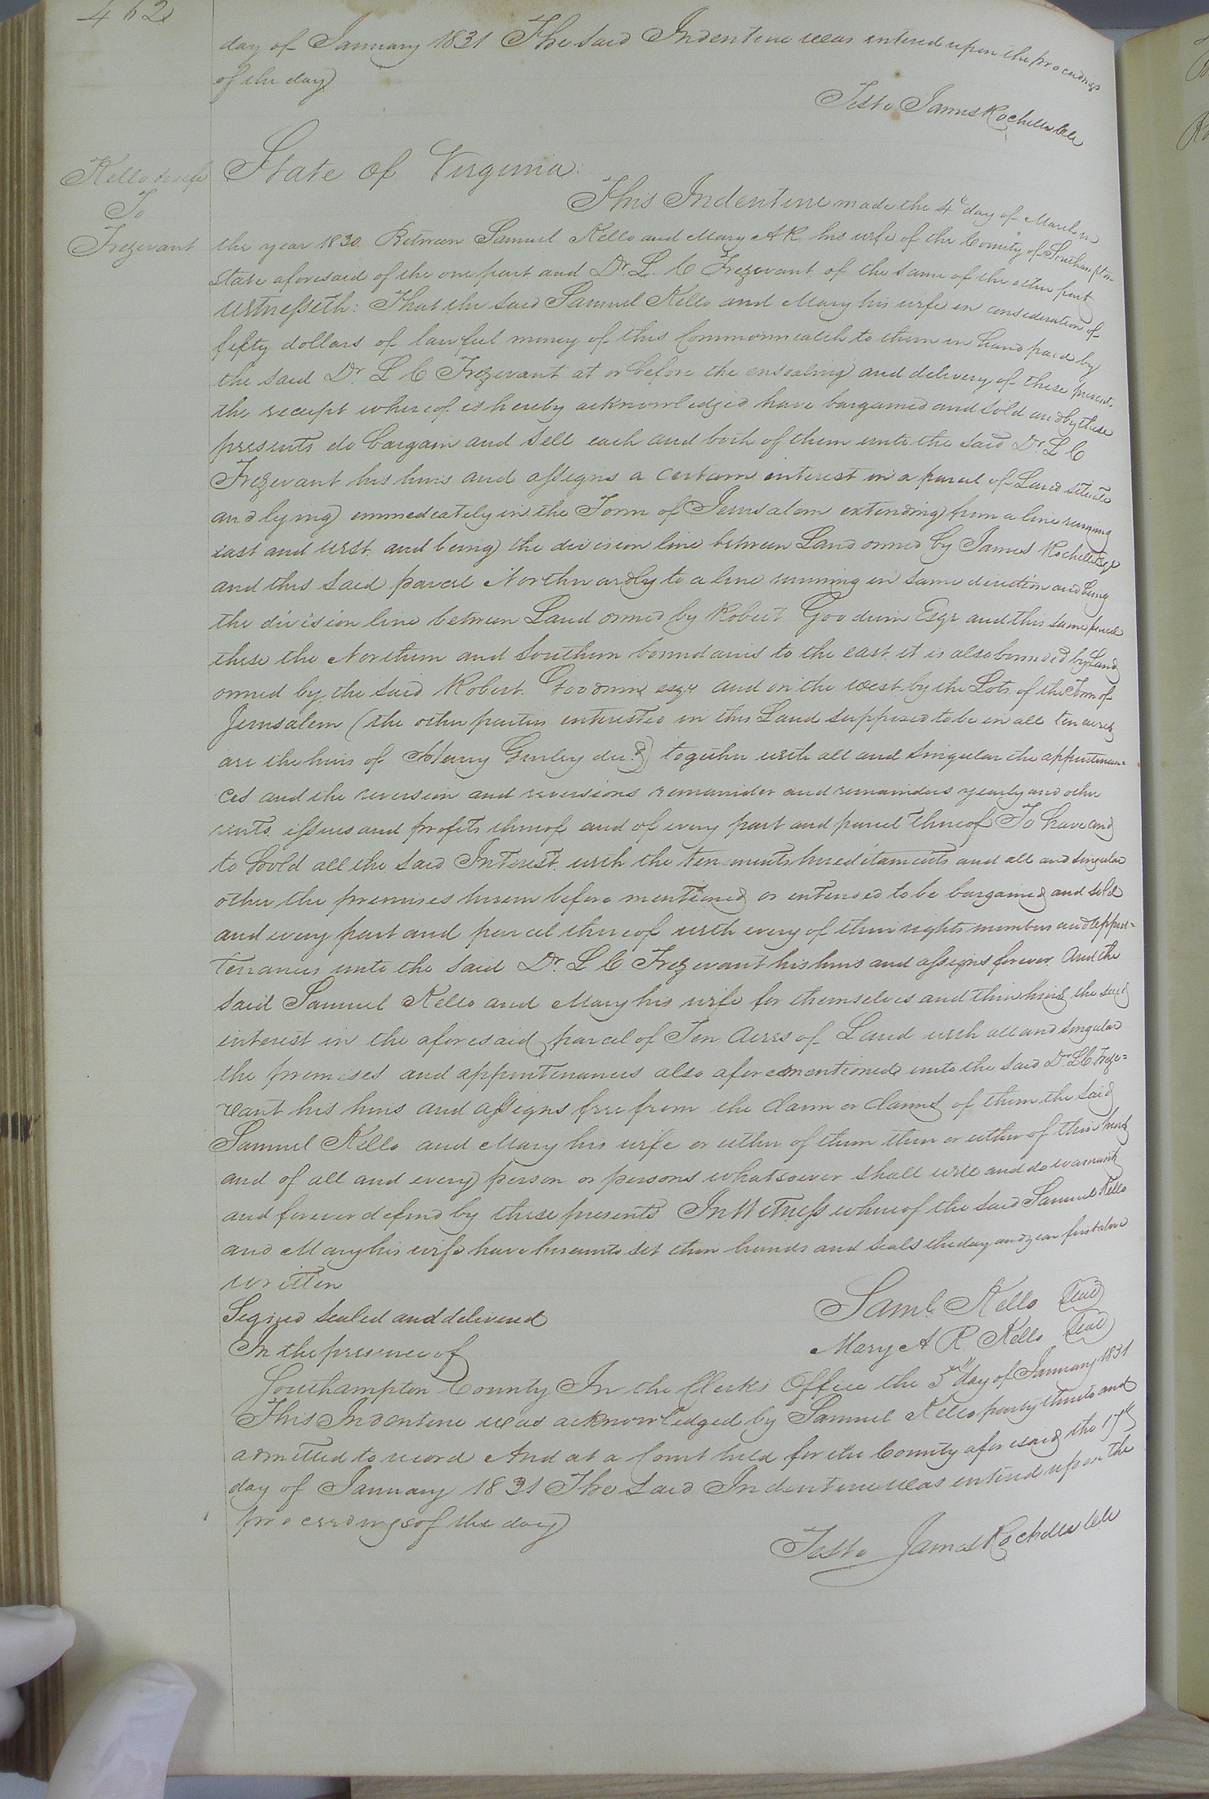 462
day of January 1831 The said Indenture was entered upon the proceedings
of the day
Teste James Rochelle Clk
Kello & wife
To
Trezevant
State of Virginia:
This Indenture made the 4th day of March in
the year 1830 Between Samuel Kello and Mary A R his wife of the County of Southampton
State aforesaid of the one part and Dr. L C Trezevant of the same of the other part
Witnesseth: That the said Samuel Kello and Mary his wife in consideration of
fifty dollars of lawful money of this Commonwealth to them in hand paid by
the said Dr. L C Trezevant at or before the ensealing and delivery of these presents
the receipt whereof is hereby acknowledged have bargained and sold and by these
presents do bargain and sell each and both of them unto the said Dr. L C
Trezevant his heirs and assigns a certain interest in a parcel of Land situate
and lying immediately in the Town of Jerusalem extending from a line running
east and west and being the division line between Land owned by James Rochelle Esqr
and this said parcel Northwardly to a line running in same direction and being
the division line between Land owned by Robert Goodwin Esqr and this same parcel
these the Northern and Southern boundaries to the east it is also bounded by Land
owned by the said Robert Goodwin esqr and on the west by the Lots of the Town of
Jerusalem (the other parties interested in this Land supposed to be in all ten acres
are the heirs of Henry Gurley decd) together with all and singular the appurtenan-
ces and the reversion and reversions remainder and remainders yearly and other
rents, issues and profits thereof and of every part and parcel thereof To have and
to hold all the said Interest with the tenements hereditaments and all and singular
other the premises herein before mentioned or intended to be bargained and sold
and every part and parcel thereof with every of their rights members and appur-
tenances unto the said Dr. L C Trezevant his heirs and assigns forever And the
said Samuel Kello and Mary his wife for themselves and their heirs the said
interest in the aforesaid parcel of Ten Acres of Land with all and singular
the premises and appurtenances also aforementioned unto the said Dr L C Treze-
vant his heirs and assigns free from the claim or claims of them the said
Samuel Kello and Mary his wife or either of them their or either of their heirs
and of all and every person or persons whatsoever shall will and do warrant
and forever defend by these presents In Witness whereof the said Samuel Kello
and Mary his wife have hereunto set their hands and seals the day and year first above
written
Signed sealed and delivered
In the presence of
Saml. Kello Seal
Mary A R Kello Seal
Southampton County In the Clerks Office the 3rd day of January 1831
This Indenture was acknowledged by Samuel Kello party thereto and
admitted to record And at a Court held for the County aforesaid the 17th
day of January 1831 The said Indenture was entered upon the
proceedings of the day
Teste James Rochelle Clk